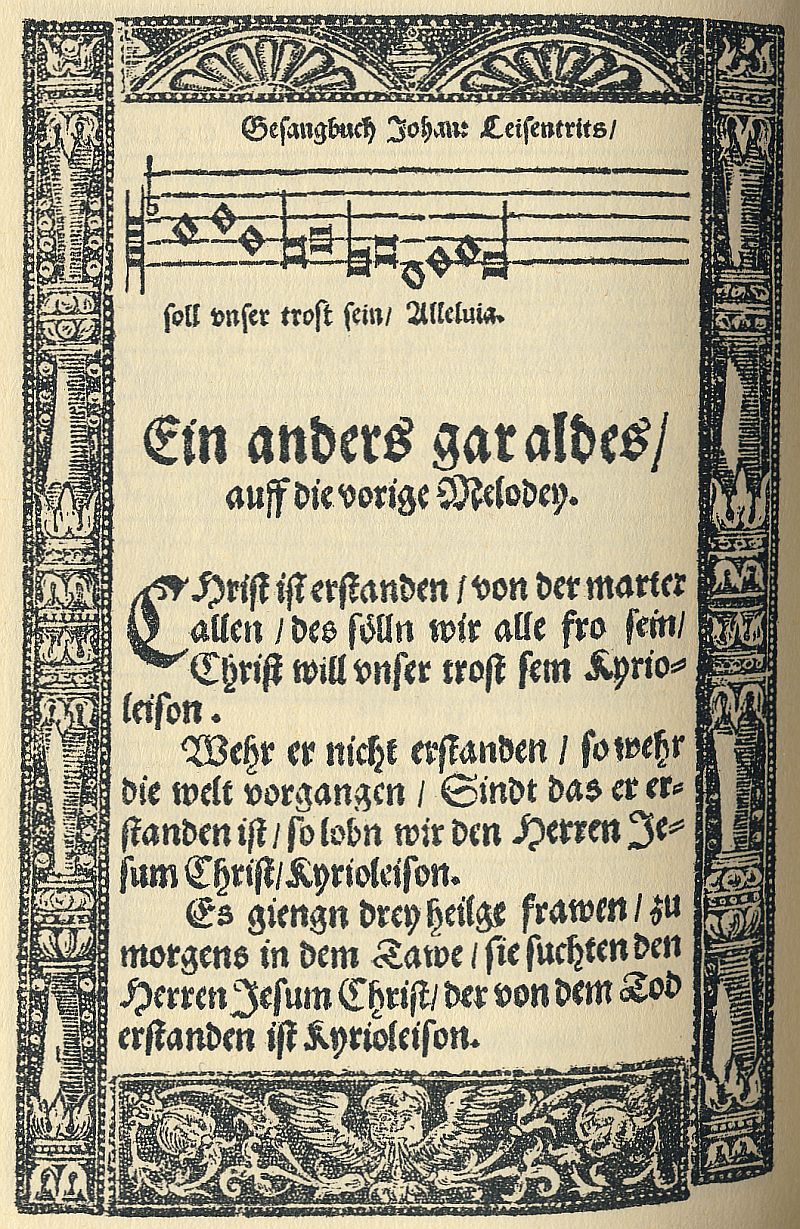 Gesangbuch Johan: Leisentrits/
soll vnser trost sein/ Alleluia.
Ein anders gar aldes/
auff die vorige Melodey.
CHrist ist erstanden / von der marter
allen / des sölln wir alle fro sein/
Christ will vnser trost sein Kyrio=
leison .
Wehr er nicht erstanden / so wehr
die welt vorgangen / Sindt das er er=
standen ist / so lobn wir den Herren Je=
sum Christ/ Kyrioleison.
Es giengn drey heilge frawen / zu
morgens in dem Tawe / sie suchten den
Herren Jesum Christ/ der von dem Tod
erstanden ist Kyrioleison.